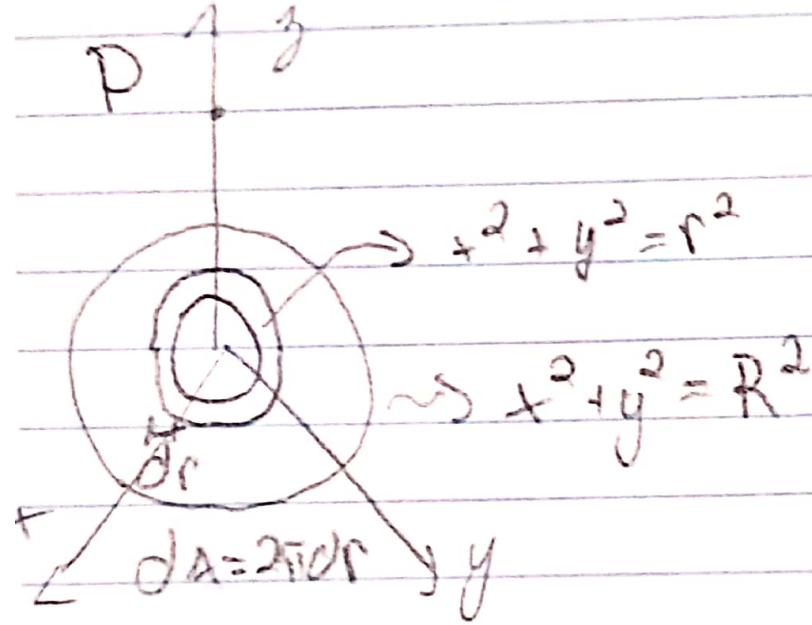 z
P
x² + y² = r²
x² + y² = R²
dr
x
dA = 2πdr
y